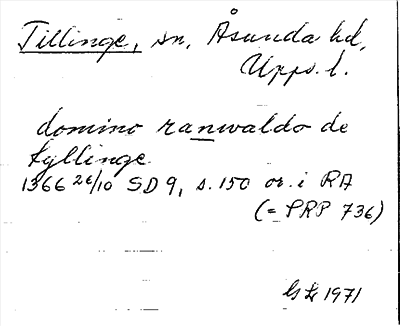 Tillinge, sn, Åsunda hd,
Upps. l.
domino ranwaldo de
tyllinge
1366 26/10 SD 9, s. 150 or. i RA
(= PRP 736)
1971